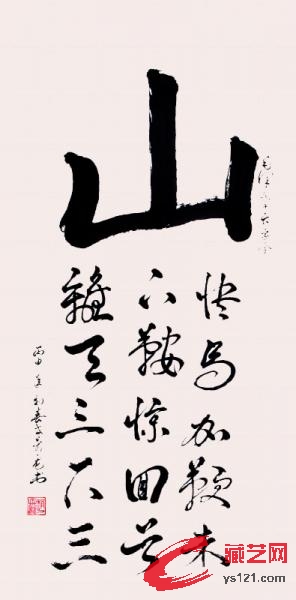 山
毛泽东十六字令
快马加鞭未
下鞍惊回首
離天三尺三
丙申年
藏艺网
ys121.com